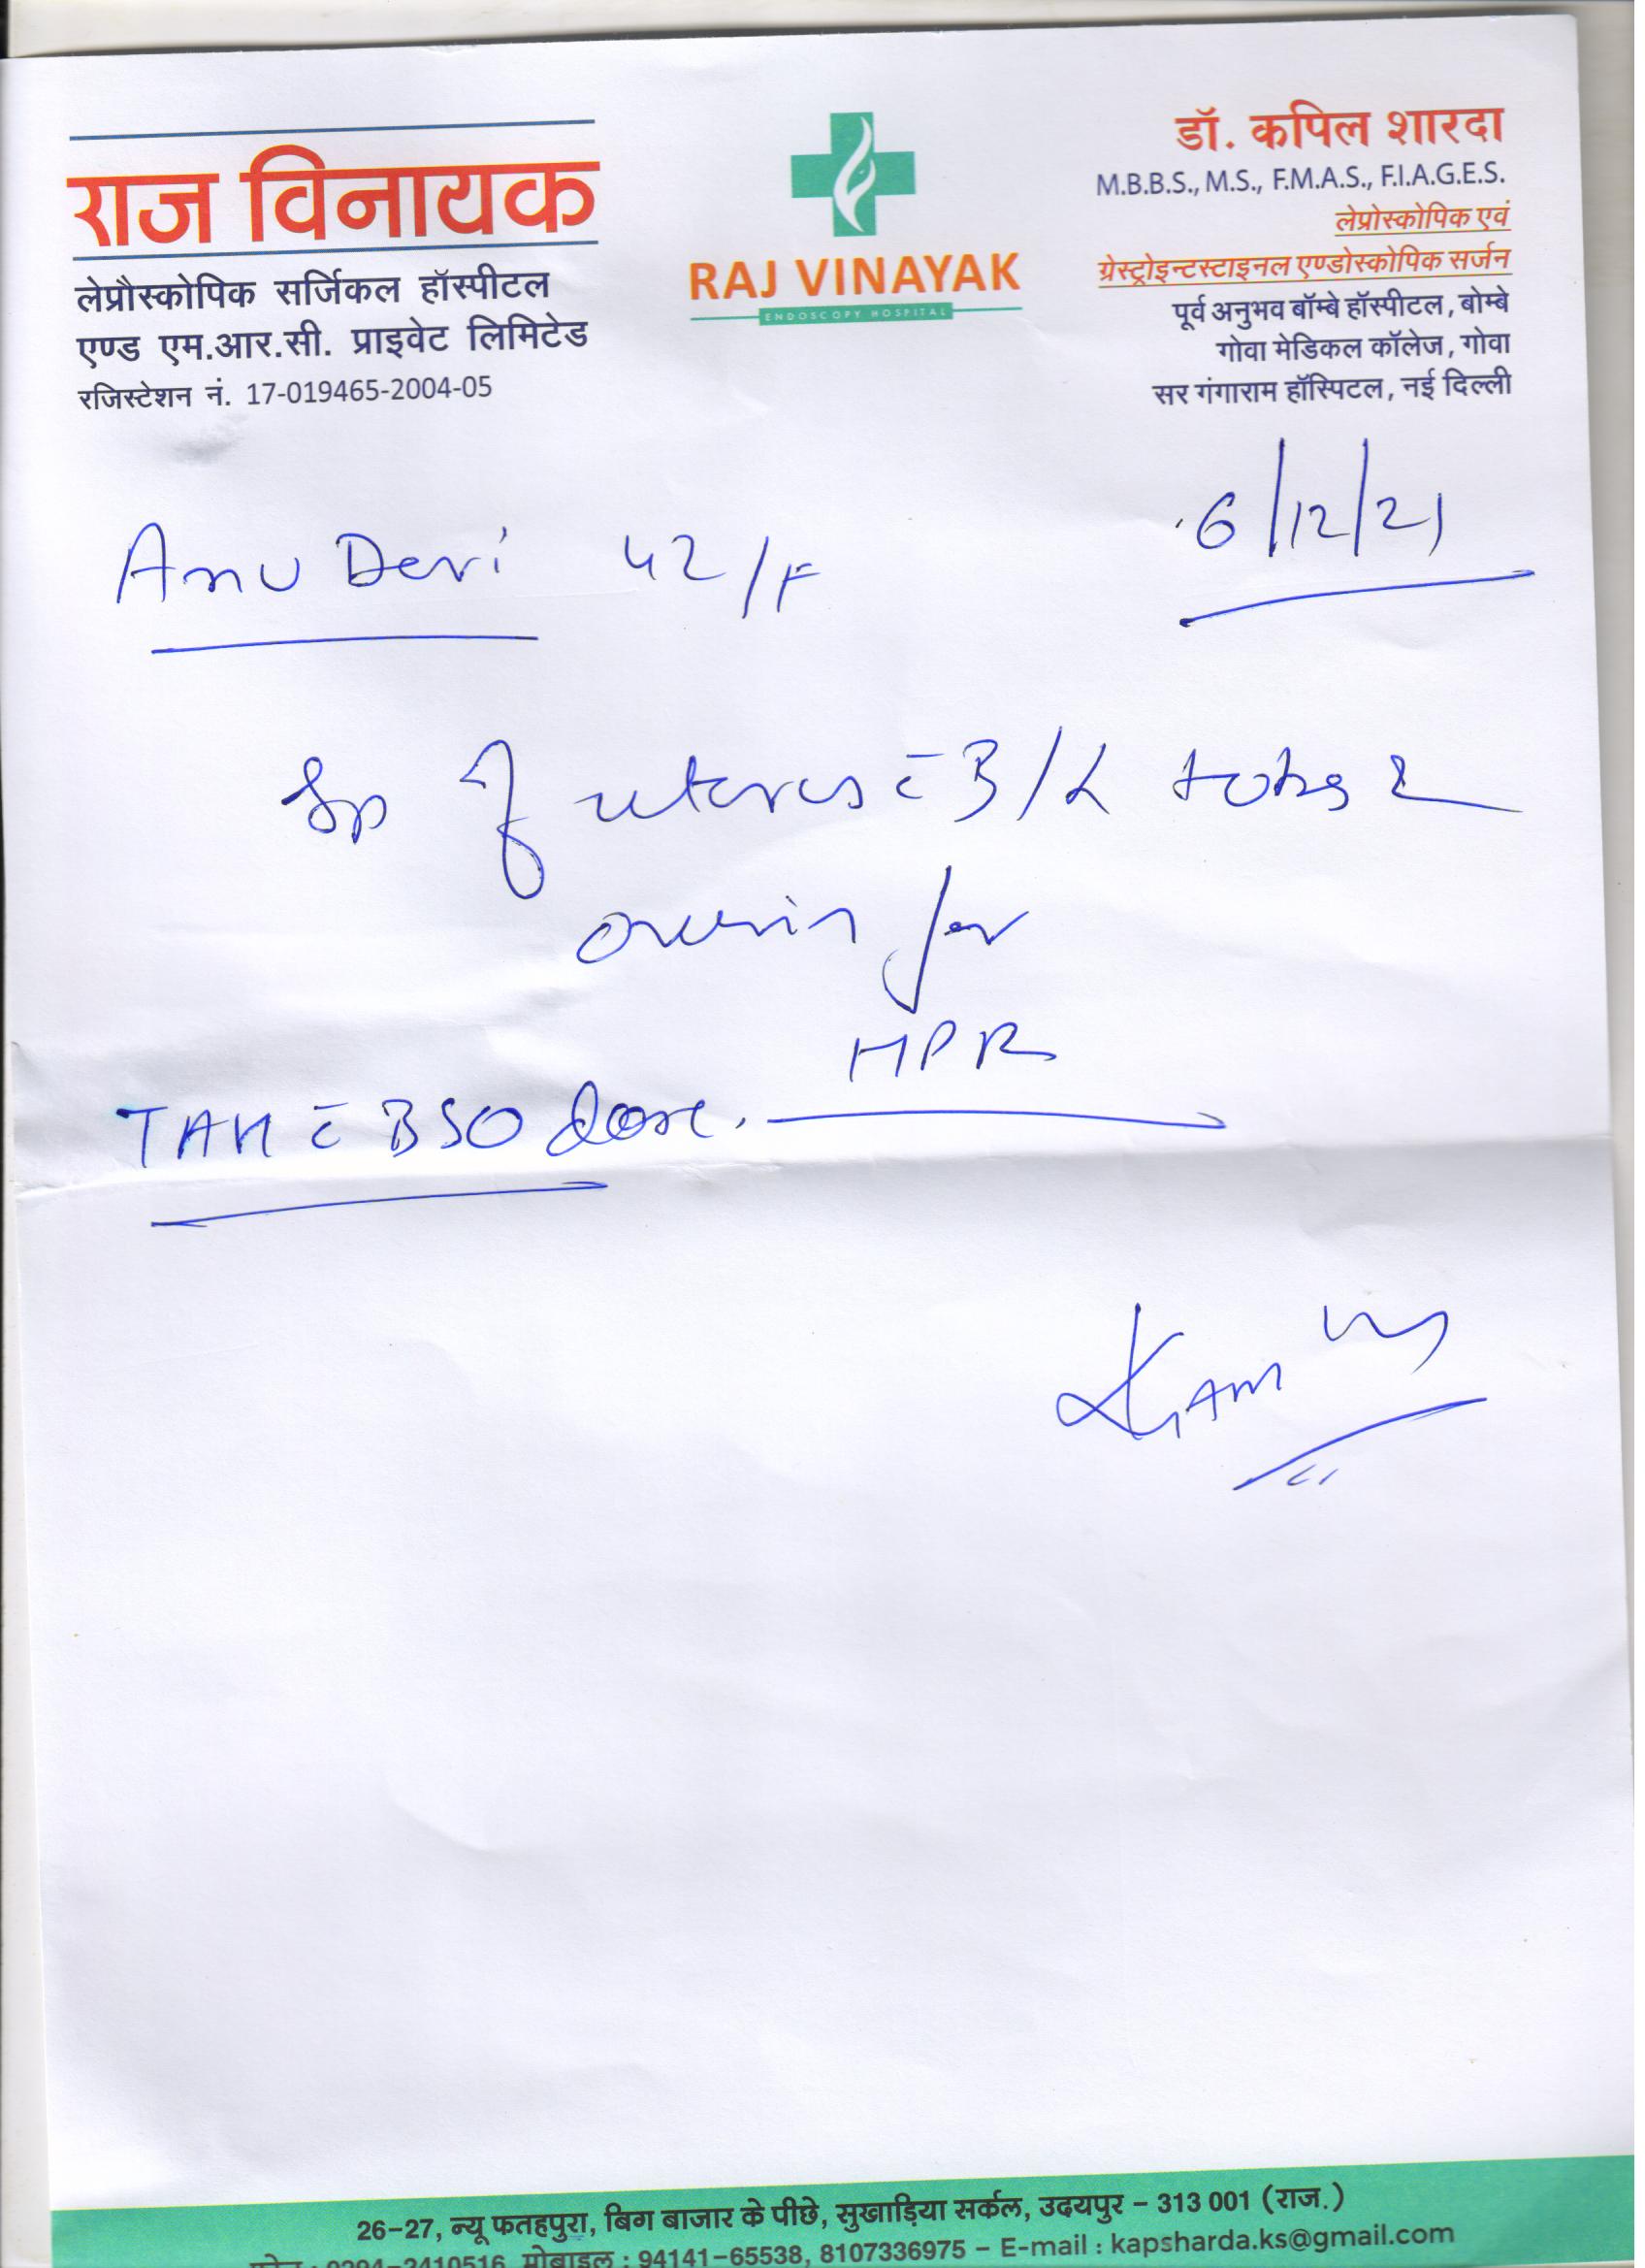 राज विनायक
लेप्रौस्कोपिक सर्जिकल हॉस्पीटल
एण्ड एम.आर.सी. प्राइवेट लिमिटेड
रजिस्टेशन नं. 17-019465-2004-05
RAJ VINAYAK
ENDOSCOPY HOSPITAL
डॉ. कपिल शारदा
M.B.B.S., M.S., F.M.A.S., F.I.A.G.E.S.
लेप्रोस्कोपिक एवं
ग्रेस्ट्रोइन्टस्टाइनल एण्डोस्कोपिक सर्जन
पूर्व अनुभव बॉम्बे हॉस्पीटल, बोम्बे
गोवा मेडिकल कॉलेज, गोवा
सर गंगाराम हॉस्पिटल, नई दिल्ली
6/12/21
Anu Devi 42/F
of uterus c̄ B/L tubes &
for
HPR
TAH c̄ BSO done.
26-27, न्यू फतहपुरा, बिग बाजार के पीछे, सुखाड़िया सर्कल, उदयपुर - 313 001 (राज.)
फोन : 0294-2410516, मोबाइल : 94141-65538, 8107336975 - E-mail : kapsharda.ks@gmail.com